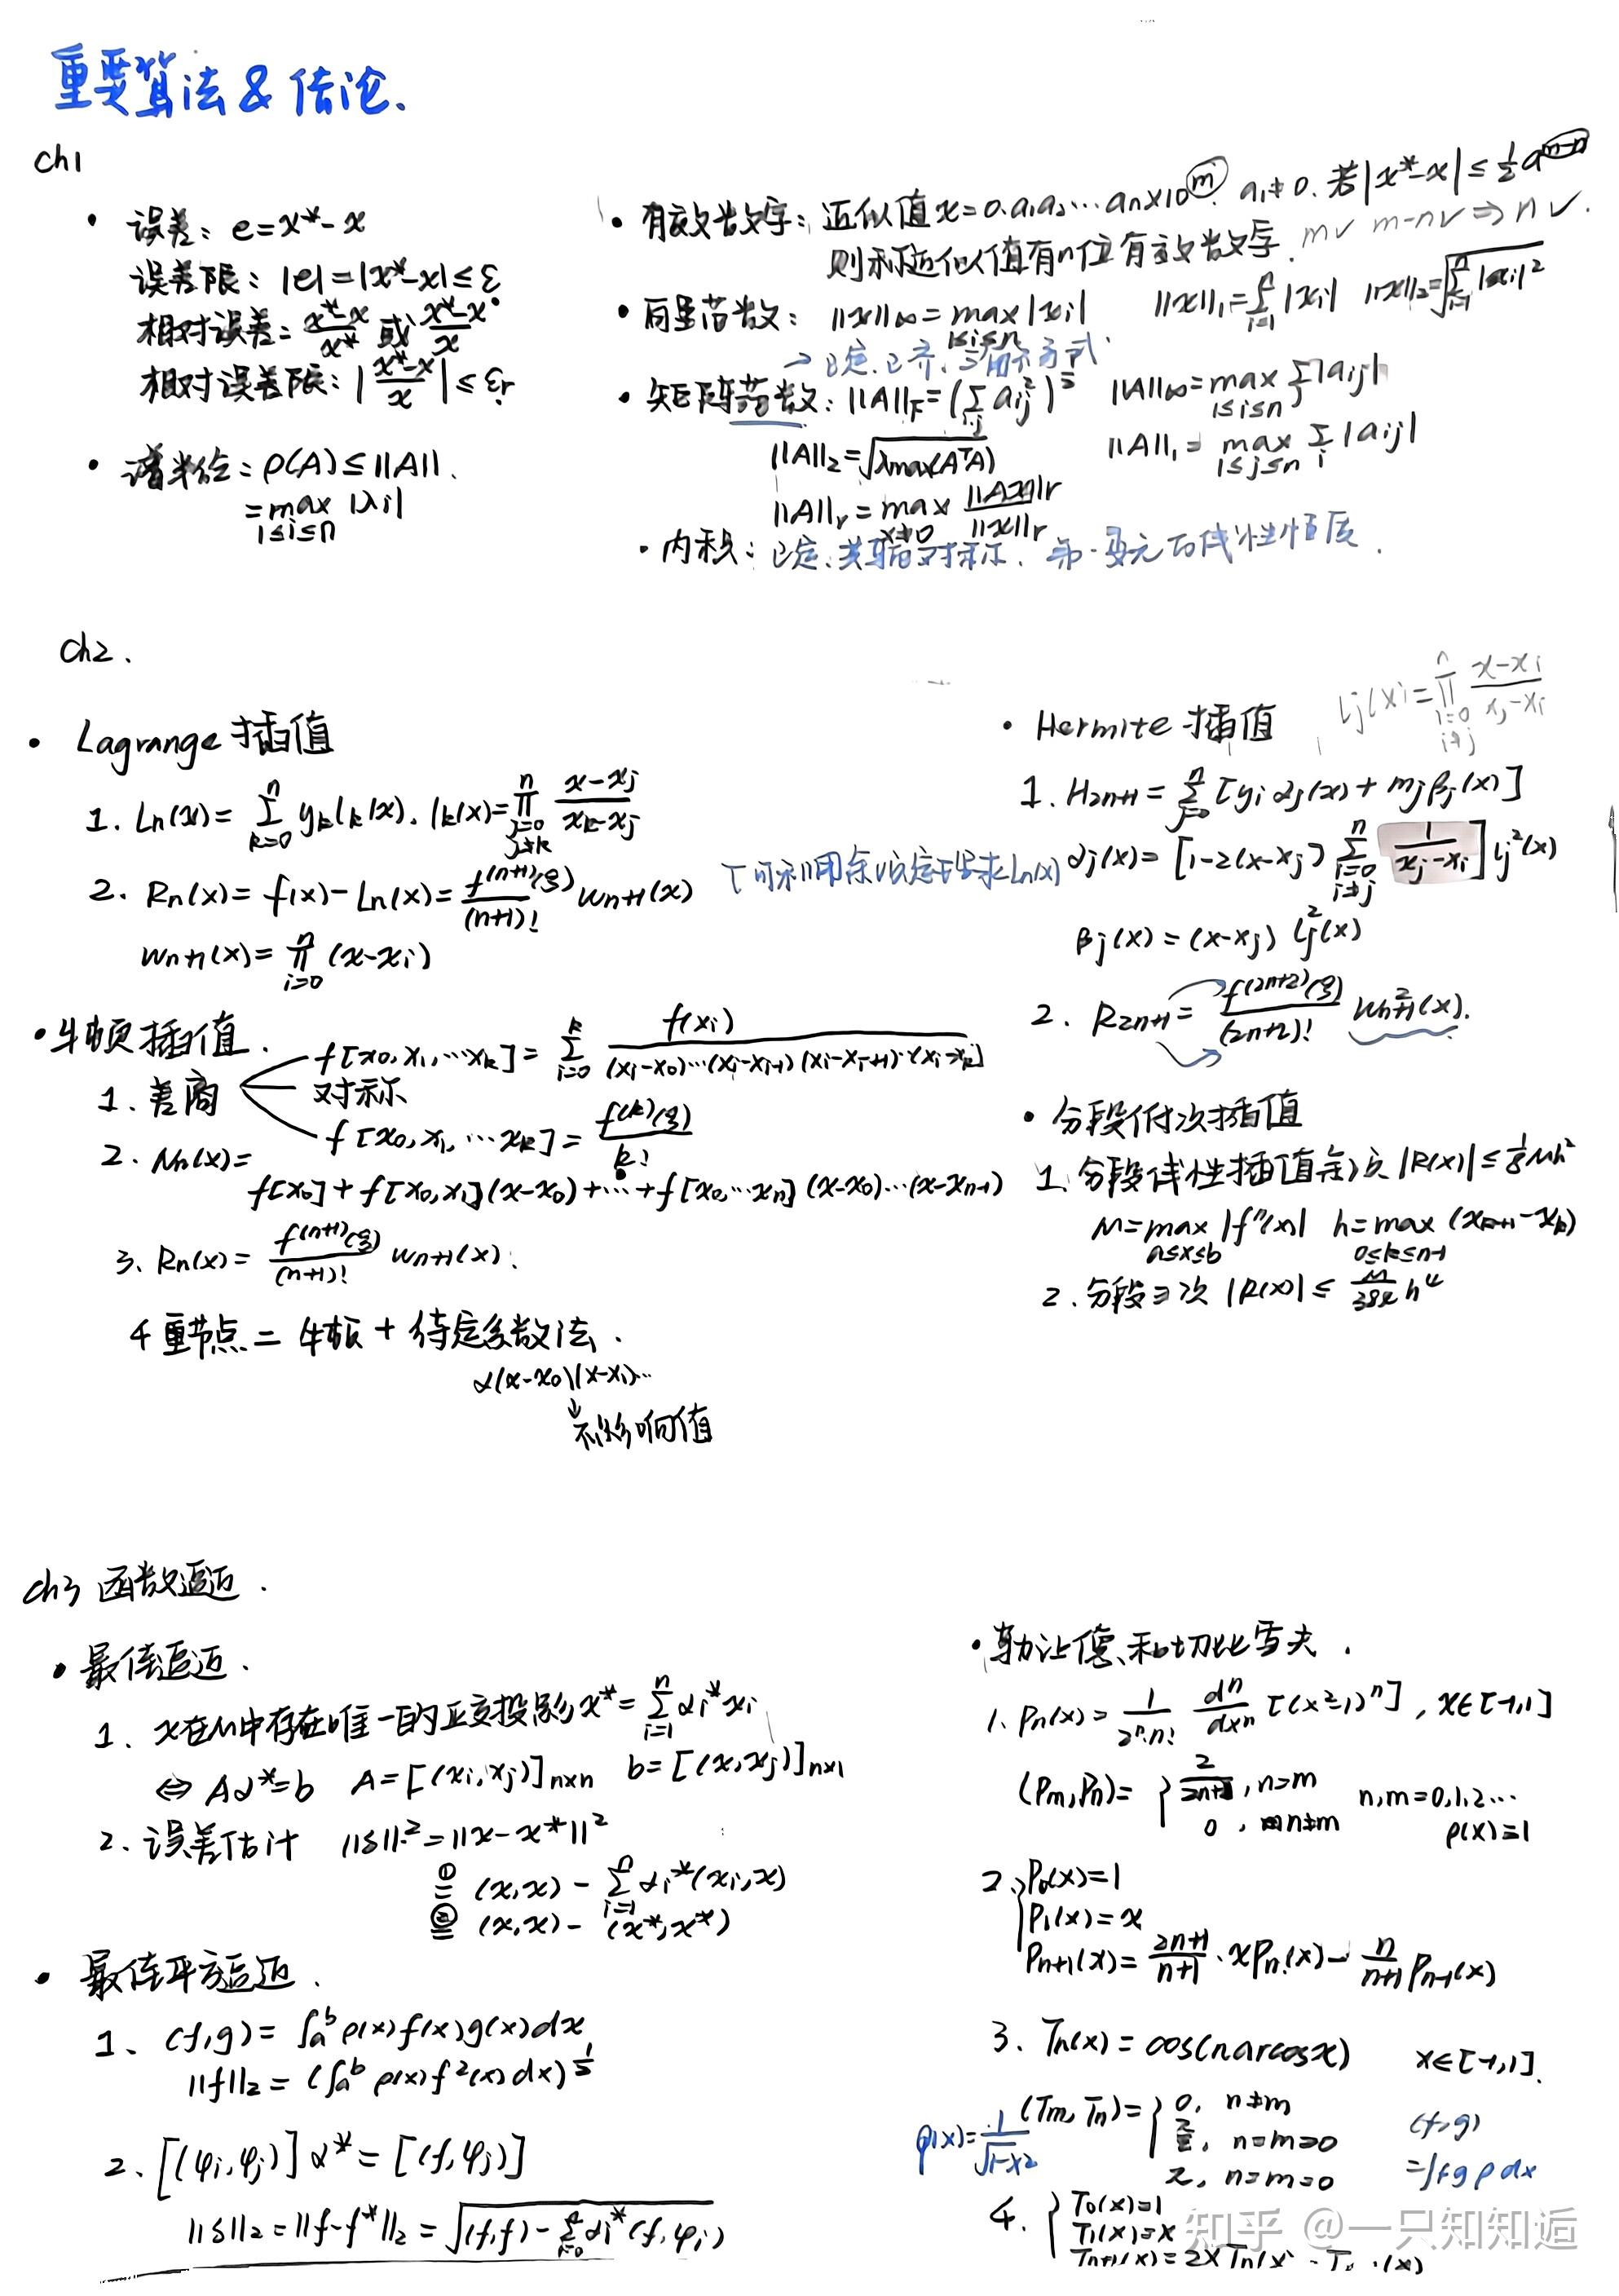 重要算法 & 结论.
ch1
· 误差: e=x*-x
误差限: |e|=|x*-x|≤ε
相对误差: (x*-x)/x* 或 (x*-x)/x
相对误差限: |(x*-x)/x|≤εr
· 谱半径: ρ(A)≤||A||.
=max |λi|
1≤i≤n
· 有效数字: 近似值 x=0.a1a2…an×10^m. a1≠0. 若|x*-x|≤½a^(m-n)
则称近似值有n位有效数字. m✓ m-n✓ ⇒ n✓.
· 向量范数: ||x||∞=max|xi| ||x||1=Σ|xi| ||x||2=√(Σ|xi|²)
1≤i≤n
→ 正定. 正齐. 三角不等式.
· 矩阵范数: ||A||F=(Σaij²)^½ ||A||∞=max Σ|aij|
1≤i≤n j
||A||2=√(λmax(AᵀA)) ||A||1=max Σ|aij|
1≤j≤n i
||A||r=max ||Ax||r/||x||r
x≠0
· 内积: 正定. 共轭对称. 第一变元的线性性质.
ch2.
· Lagrange 插值
1. Ln(x)=Σ(k=0,n) yk lk(x). lk(x)=∏(j=0,j≠k,n) (x-xj)/(xk-xj)
2. Rn(x)=f(x)-Ln(x)=f^(n+1)(ξ)/(n+1)! wn+1(x)
wn+1(x)=∏(i=0,n) (x-xi)
· 牛顿插值.
1. 差商
f[x0,x1,…xk]=Σ(i=0,k) f(xi)/((xi-x0)…(xi-xi-1)(xi-xi+1)…(xi-xk))
对称
f[x0,x1,…xk]=f^(k)(ξ)/k!
2. Nn(x)=
f[x0]+f[x0,x1](x-x0)+…+f[x0,…xn](x-x0)…(x-xn-1)
3. Rn(x)=f^(n+1)(ξ)/(n+1)! wn+1(x).
4 重节点 = 牛顿 + 待定系数法.
α(x-x0)(x-x1)…
↓
不影响值
· Hermite 插值 lj(x)=∏(i=0,i≠j,n) (x-xi)/(xj-xi)
1. H2n+1=Σ(j=0,n) [yi αj(x)+mjβj(x)]
αj(x)=[1-2(x-xj)Σ(i=0,i≠j,n) 1/(xj-xi)] lj²(x)
βj(x)=(x-xj) lj²(x)
2. R2n+1=f^(2n+2)(ξ)/(2n+2)! wn+1²(x).
· 分段低次插值
1. 分段线性插值余项 |R(x)|≤⅛Mh²
M=max|f''(x)| h=max(xk+1-xk)
a≤x≤b 0≤k≤n-1
2. 分段三次 |R(x)|≤ M/384 h⁴
ch3 函数逼近.
· 最佳逼近.
1. x在M中存在唯一的正交投影 x*=Σ(i=1,n) αi*xi
⇔ Aα*=b A=[(xi,xj)]n×n b=[(x,xj)]n×1
2. 误差估计 ||δ||²=||x-x*||²
①= (x,x)-Σ(i=1,n) αi*(xi,x)
②= (x,x)-(x*,x*)
· 最佳平方逼近.
1. (f,g)=∫a^b ρ(x)f(x)g(x)dx
||f||2=(∫a^b ρ(x)f²(x)dx)^½
2. [(φi,φj)]α*=[(f,φj)]
||δ||2=||f-f*||2=√((f,f)-Σ(i=0,n) αi*(f,φi))
· 勒让德和切比雪夫.
1. Pn(x)=1/(2^n·n!) d^n/dx^n [(x²-1)^n], x∈[-1,1]
(Pm,Pn)={ 2/(2n+1), n=m n,m=0,1,2…
0, n≠m ρ(x)=1
2. { P0(x)=1
P1(x)=x
Pn+1(x)=(2n+1)/(n+1)·xPn(x)-n/(n+1) Pn-1(x)
3. Tn(x)=cos(narccosx) x∈[-1,1].
ρ(x)=1/√(1-x²) (Tm,Tn)={ 0, n≠m
π/2, n=m≠0
π, n=m=0
(f,g)
=∫fgρdx
4. { T0(x)=1
T1(x)=x
Tn+1(x)=2xTn(x)-T (x)
知乎 @一只知知逅